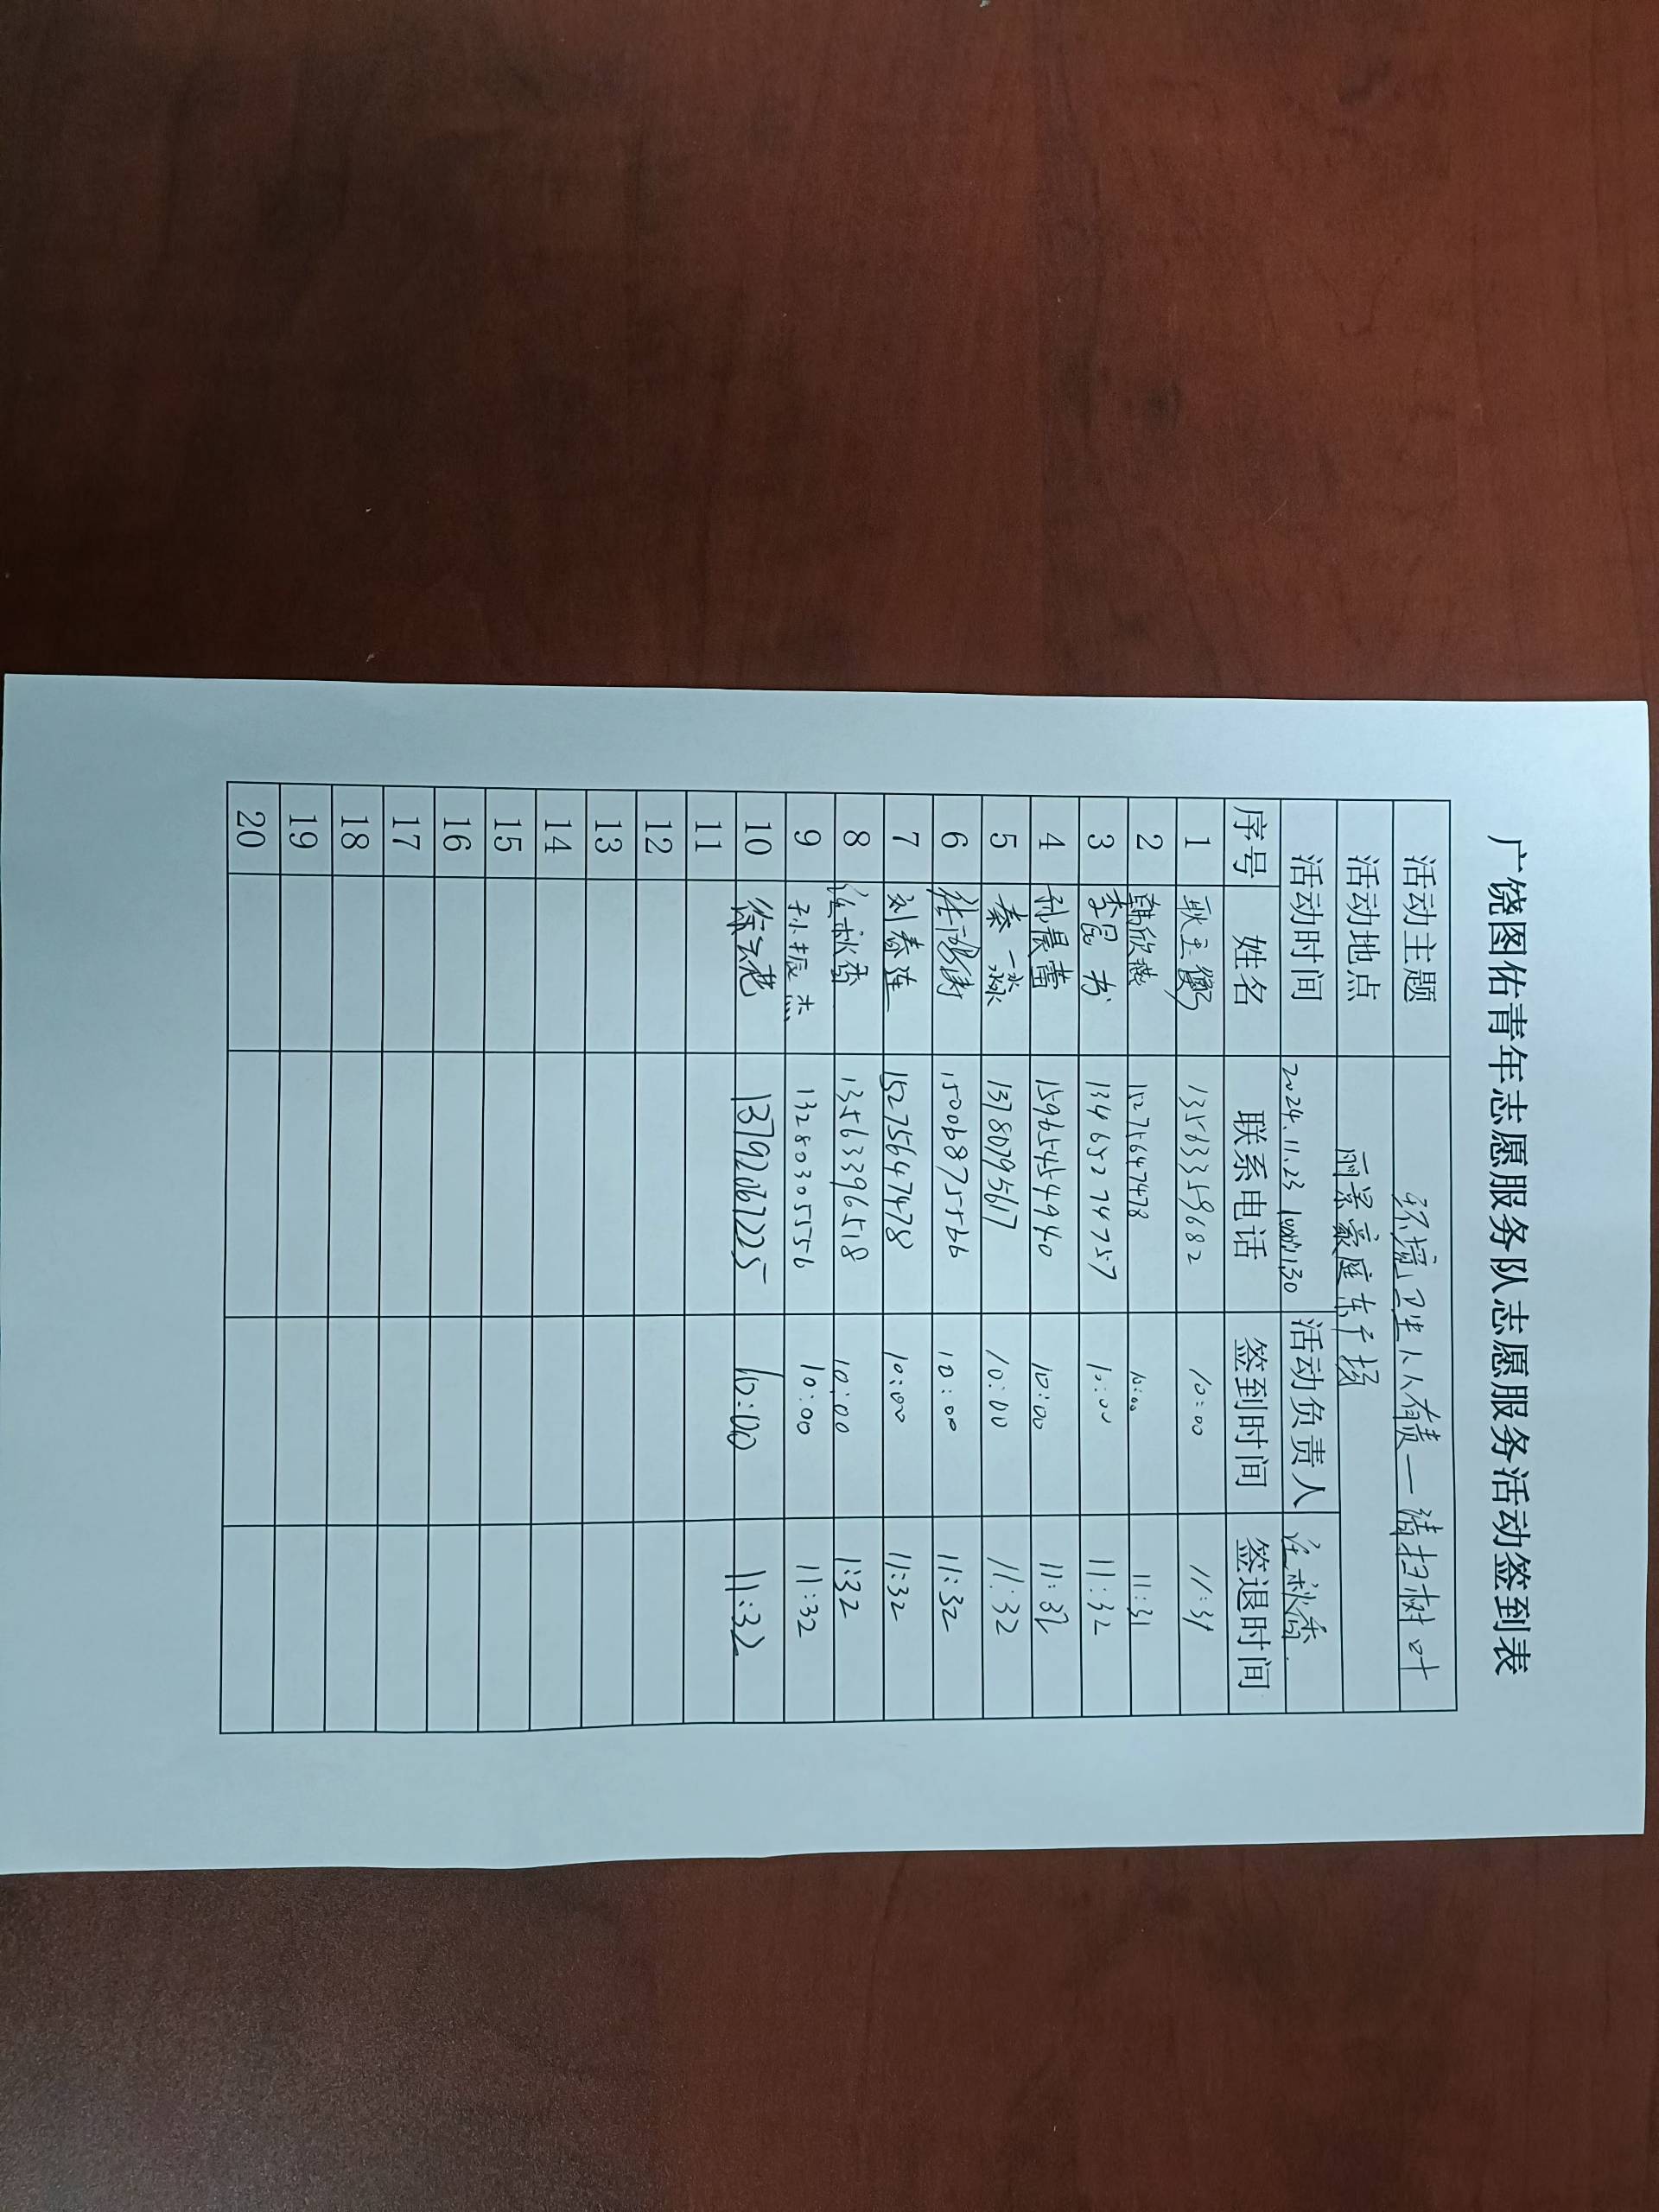 广饶图佑青年志愿服务队志愿服务活动签到表
活动主题 环境卫生人人有责一清扫树叶
活动地点 丽景豪庭东广场
活动时间 2024.11.23 11:30 活动负责人 任秋香
序号 姓名 联系电话 签到时间 签退时间
1 耿玉 13563359682 10:00 11:31
2 韩欣燕 15275647478 10:00 11:31
3 李昆 13465274757 10:00 11:32
4 孙晨蕾 15965454940 10:00 11:32
5 秦一淼 13780795617 10:00 11:32
6 15006875566 10:00 11:32
7 刘春莲 15275647478 10:00 11:32
8 任秋香 13563396518 10:00 1:32
9 孙振杰 13280305556 10:00 11:32
10 徐云花 13792067225 10:00 11:32
11
12
13
14
15
16
17
18
19
20